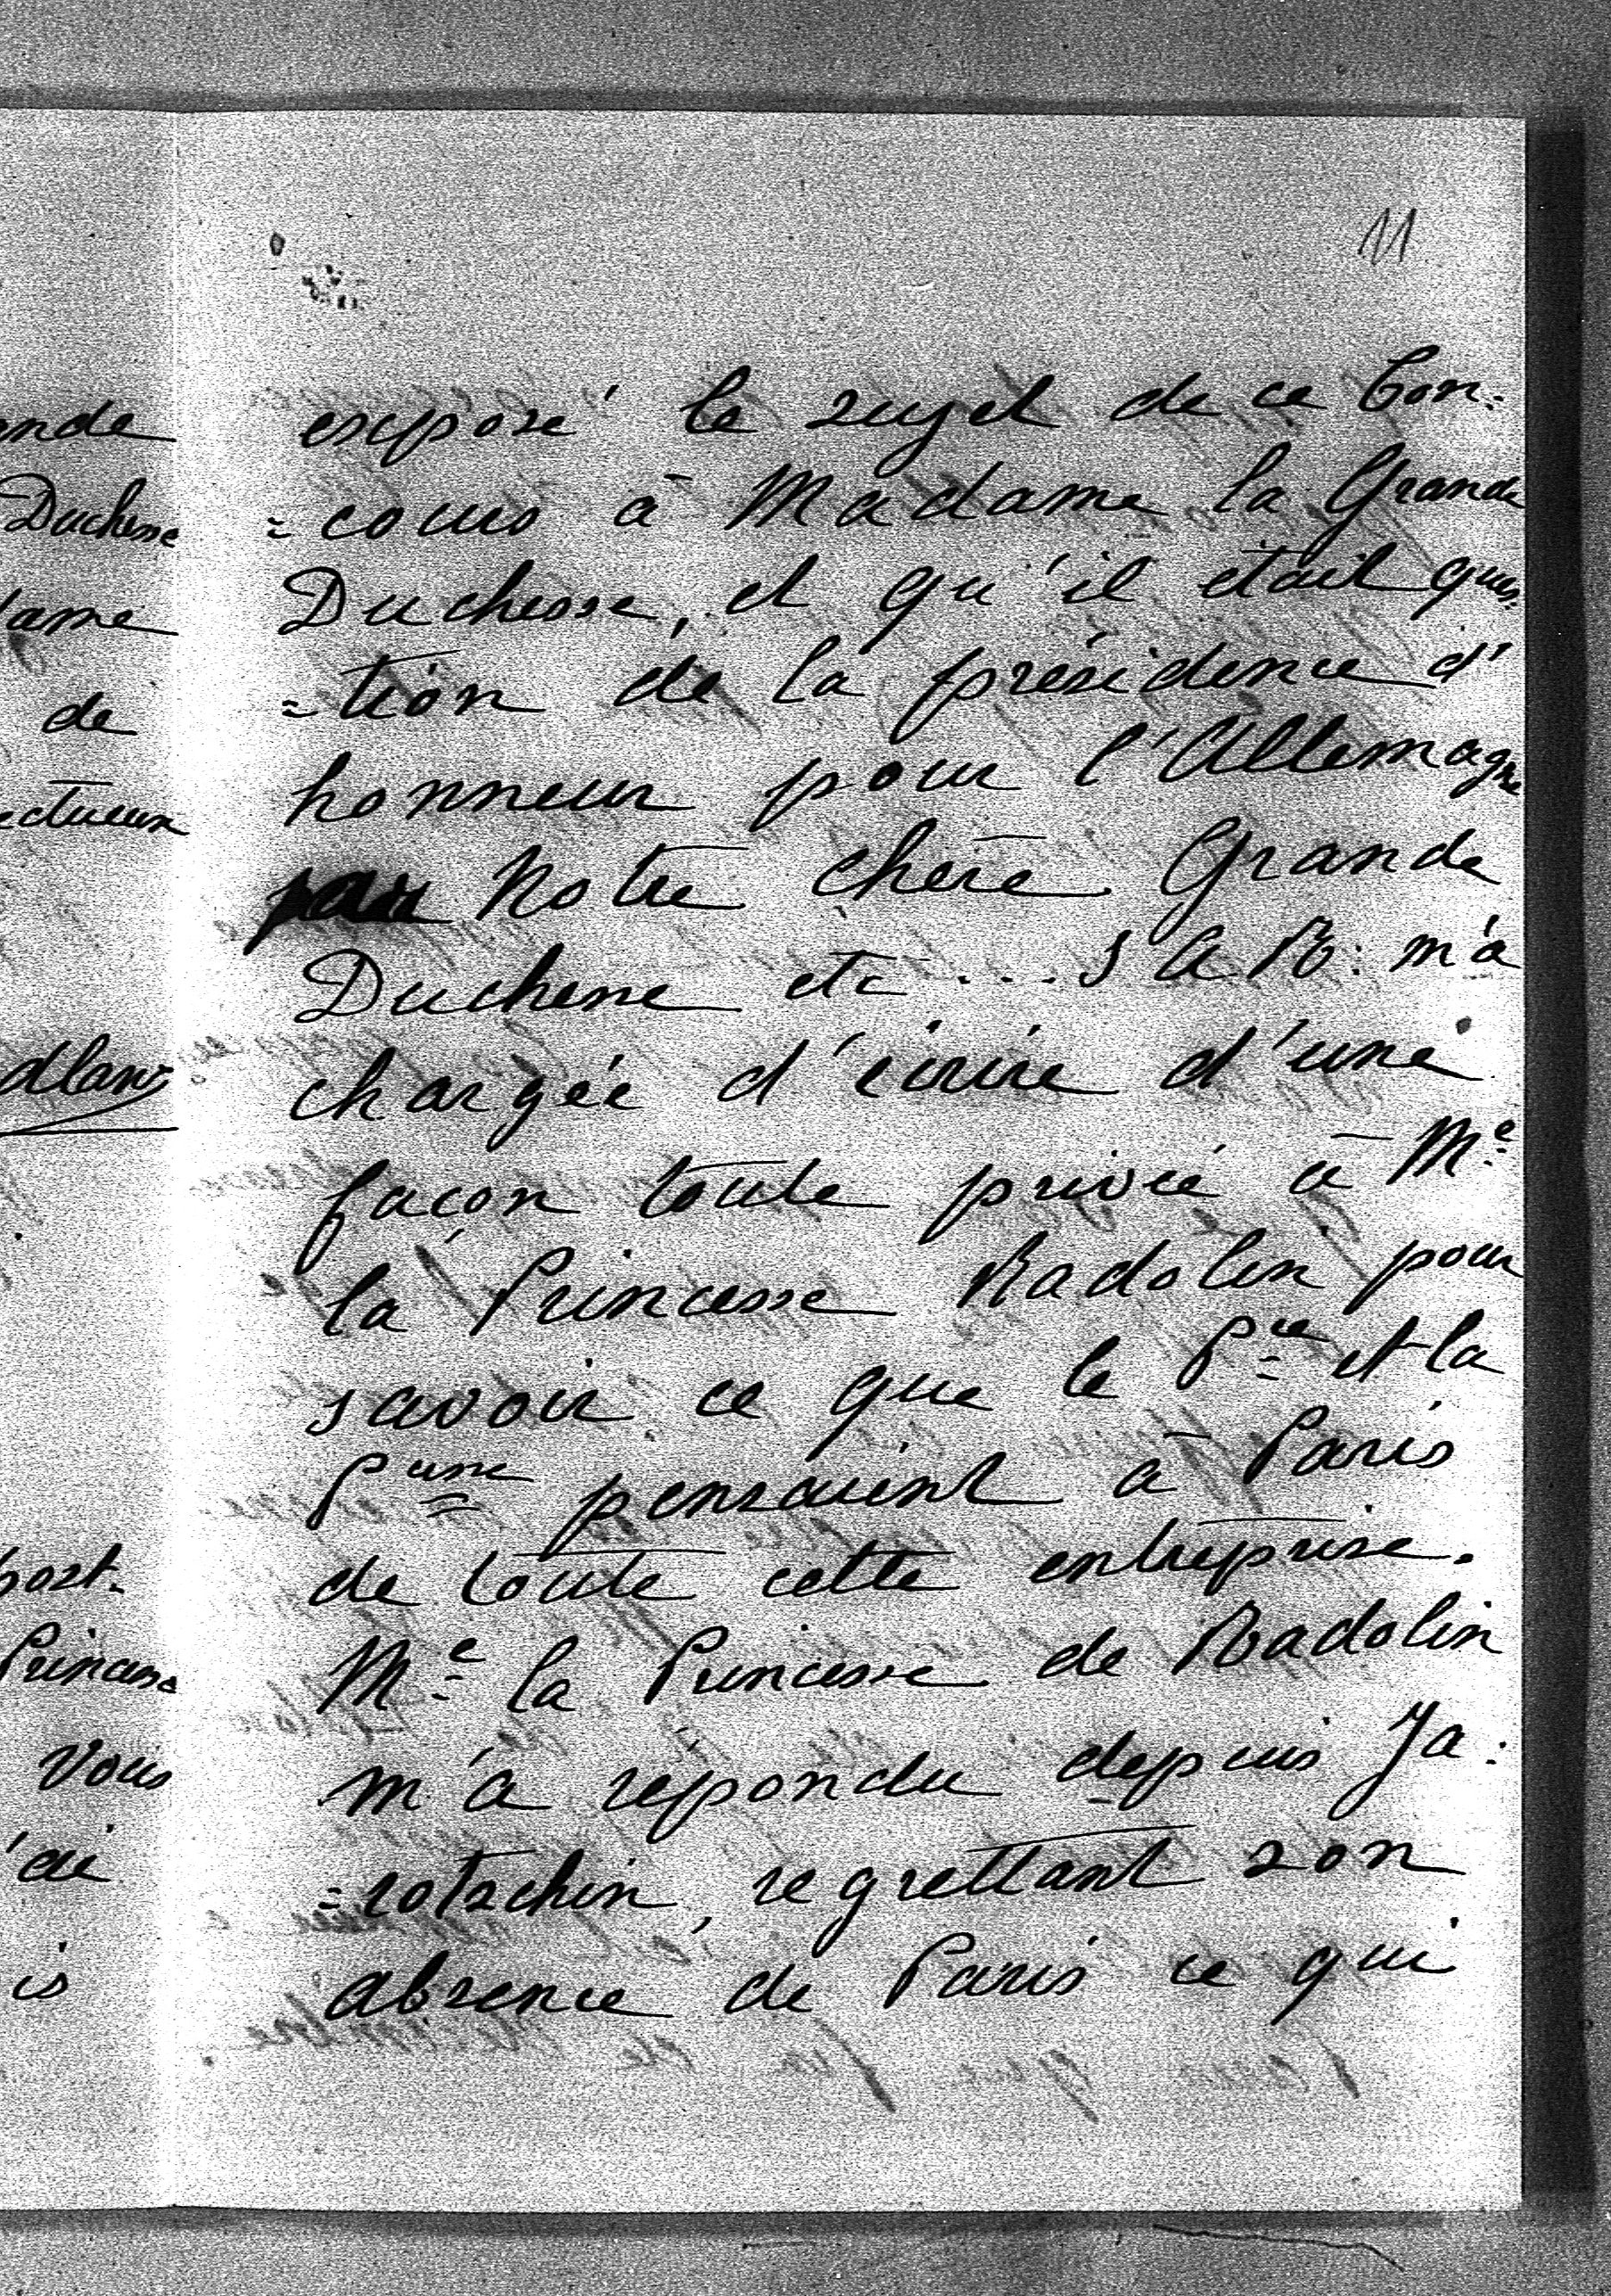 11
exposé le sujet de ce Con=
=cours à Madame la Grande
Duchesse, et qu'il était ques=
=tion de la présidence d'
honneur pour l'Allemagne
par Notre chère Grande
Duchesse etc.... S A R: m'a
chargée d'écrire d'une
façon toute privée à Me
la Princesse Radolin pour
savoir ce que le Pce et la
Pcesse pensaient à Paris
de toute cette entreprise.
Me la Princesse de Radolin
m'a répondu depuis Ja=
=rotschin, regrettant son
absence de Paris ce qui
onde
Duchesse
dame
de
ectueux
post-
Princesse
vous
'ai
is